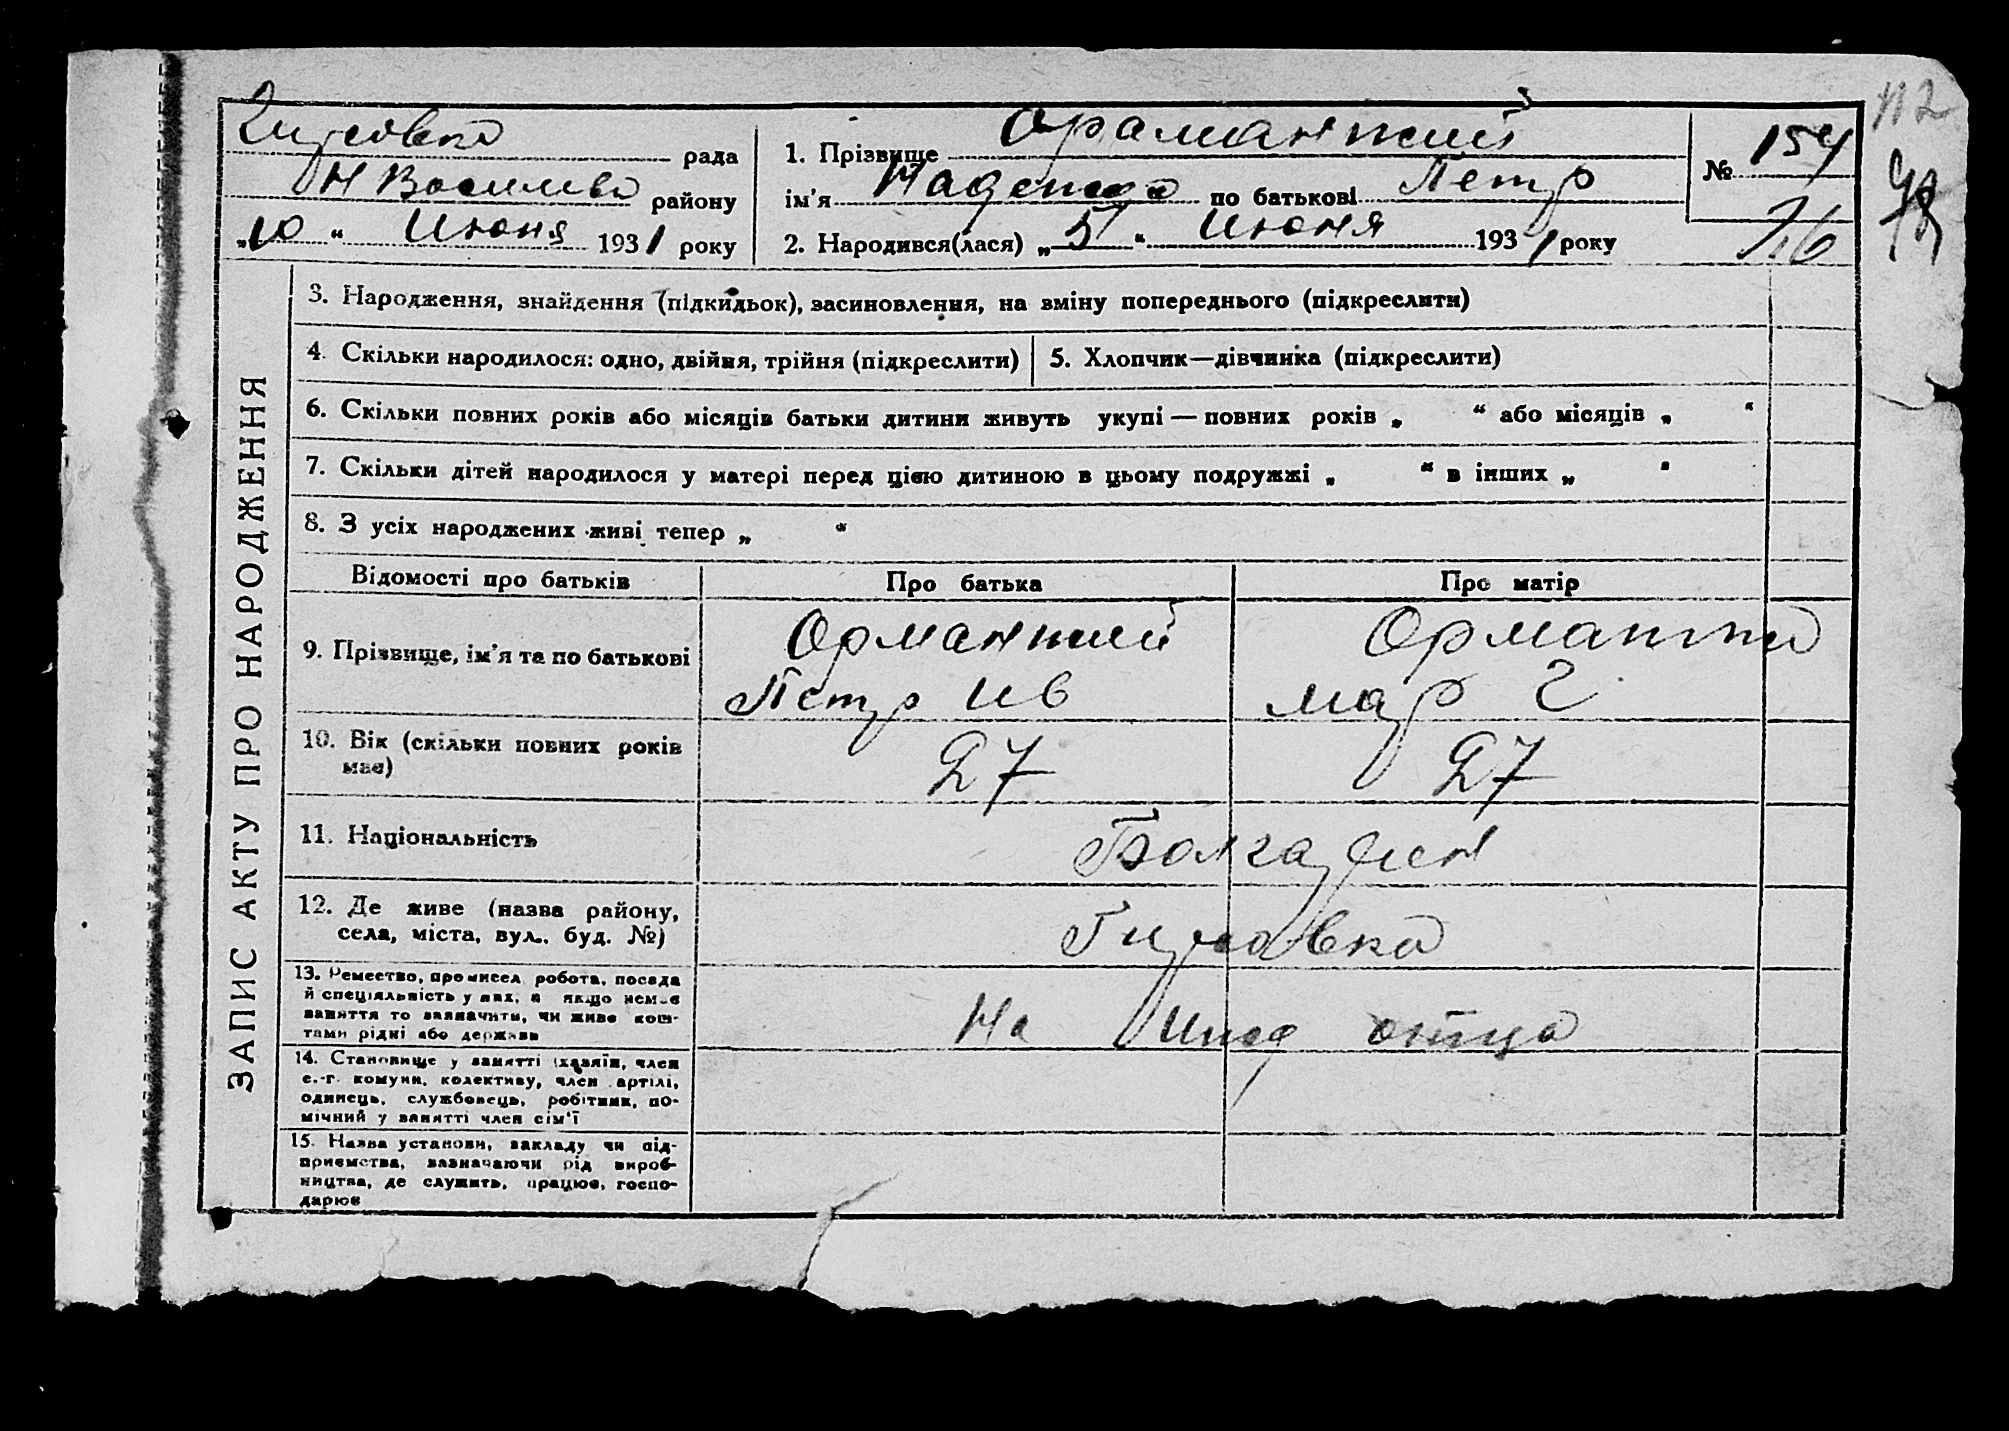 Гирсовка рада
Н Василів району
„10“ Июня 1931 року
1. Прізвище Ораманжий
ім'я Надежда по батькові Петр
2. Народився(лася) „5“ Июня 1931 року
№ 154
76
112
ЗАПИС АКТУ ПРО НАРОДЖЕННЯ
3. Народження, знайдення (підкидьок), засиновлення, на зміну попереднього (підкреслити)
4. Скільки народилося: одно, двійня, трійня (підкреслити)
5. Хлопчик—дівчинка (підкреслити)
6. Скільки повних років або місяців батьки дитини живуть укупі — повних років „ “ або місяців „ “
7. Скільки дітей народилося у матері перед цією дитиною в цьому подружжі „ “ в інших „ “
8. З усіх народжених живі тепер „ “
Відомості про батьків Про батька Про матір
9. Прізвище, ім'я та по батькові
Орманжий
Петр Ив
Орманжи
Мар Г
10. Вік (скільки повних років
має)
27 27
11. Національність Болгарин
12. Де живе (назва району,
села, міста, вул., буд. №)
Гирсовка
13. Ремество, промисел робота, посада
й спеціяльність у них, а якщо немає
заняття то зазначити, чи живе кош-
тами рідні або держави
На Ижд отца
14. Становище у занятті (хазяїн, член
с.-г. комуни, колективу, член артілі,
одинець, службовець, робітник, по-
мічний у занятті член сім'ї
15. Назва установи, закладу чи під-
приємства, зазначаючи рід вироб-
ництва, де служить, працює, госпо-
дарює